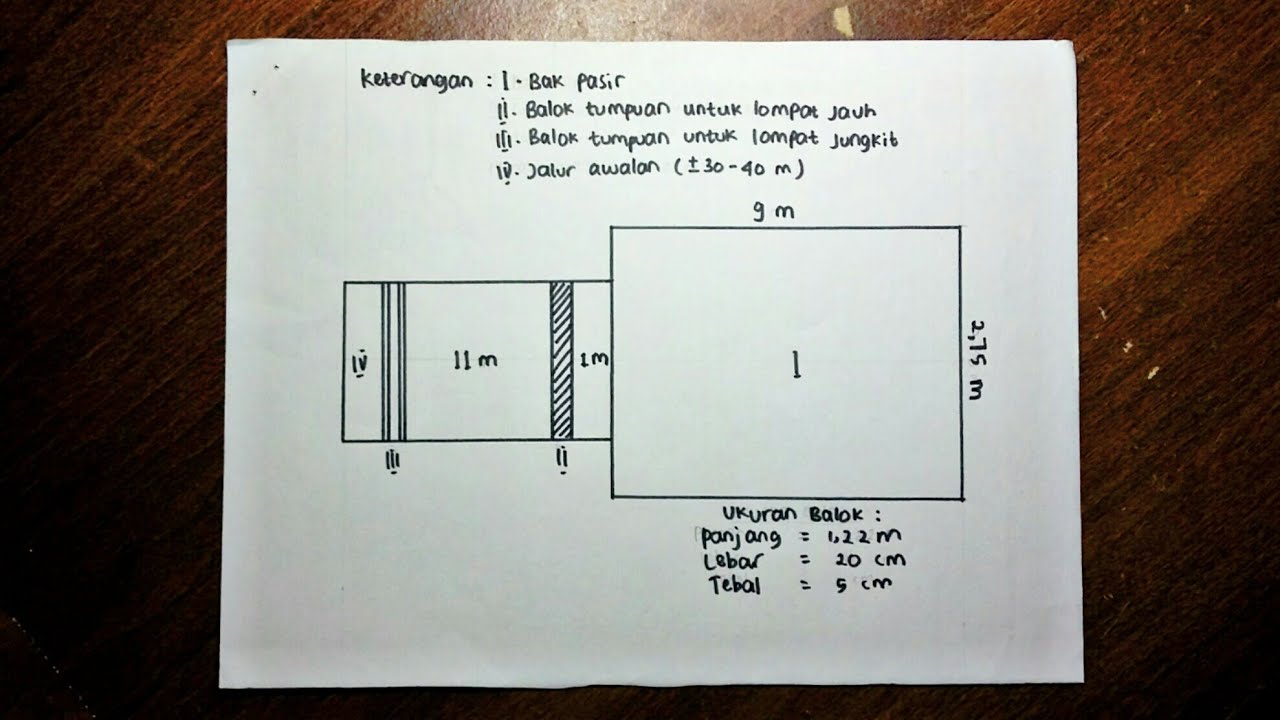 Keterangan : I. Bak pasir
II. Balok tumpuan untuk lompat jauh
III. Balok tumpuan untuk lompat jungkit
IV. Jalur awalan (±30-40 m)
9 m
IV
11 m
1 m
I
2,75 m
III
II
Ukuran Balok :
panjang = 1,22 m
Lebar = 20 cm
Tebal = 5 cm